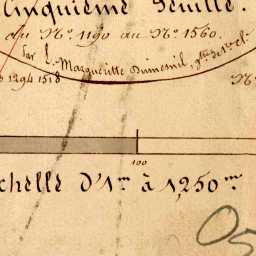 Cinquième Feuille.
du N.° 1190 au N.° 1560.
Par L. Margueritte Dumesnil, g.tre de 1re cl.
1294 1518 N.°
100
chelle D'1.m à 1,250.m